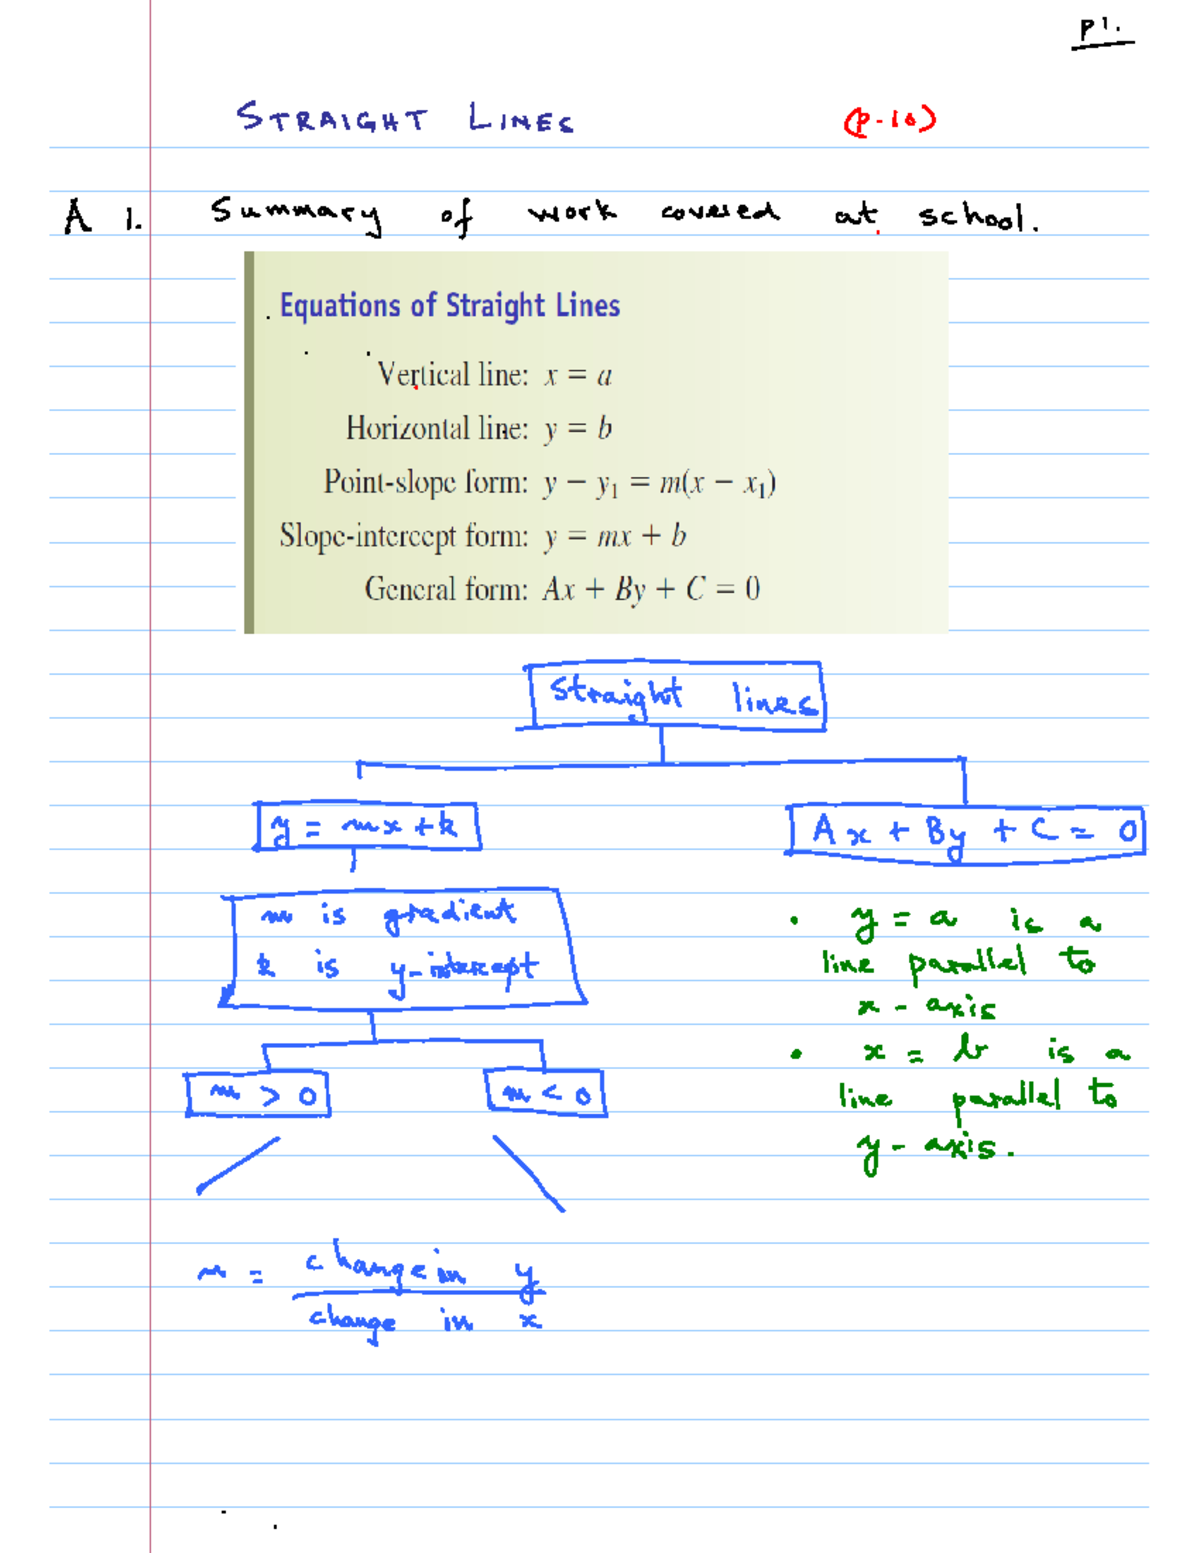 P1.
STRAIGHT LINES (P.10)
A 1. Summary of work covered at school.
Equations of Straight Lines
Vertical line: x = a
Horizontal line: y = b
Point-slope form: y − y₁ = m(x − x₁)
Slope-intercept form: y = mx + b
General form: Ax + By + C = 0
Straight lines
y = mx + k
Ax + By + C = 0
m is gradient
k is y-intercept
m > 0
m < 0
m = change in y
change in x
• y = a is a
line parallel to
x - axis
• x = b is a
line parallel to
y - axis.